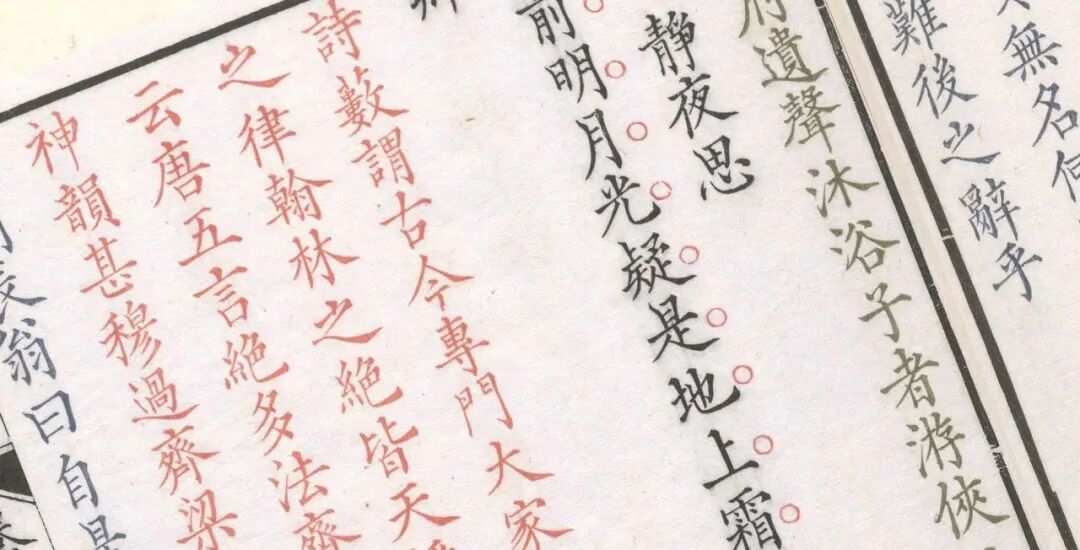 無名何
難後之辭乎
遺聲沐浴子者游俠
靜夜思
前明月光疑是地上霜
詩藪謂古今專門大家
之律翰林之絶皆天
云唐五言絶多法齊
神韻甚穆過齊梁
翁曰自是